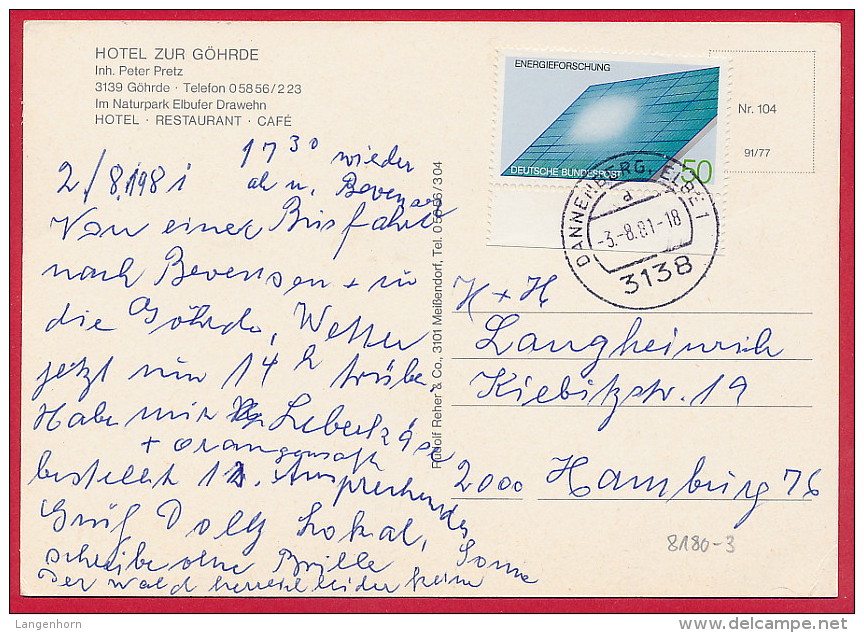 HOTEL ZUR GÖHRDE
Inh. Peter Pretz
3139 Göhrde · Telefon 05856/223
Im Naturpark Elbufer Drawehn
HOTEL · RESTAURANT · CAFÉ
17 30 wieder
2./8.1981 ab n. Bevensen
Von einer Busfahrt
nach Bevensen + in
die Göhrde, Wetter
jetzt um 14 h trübe,
Habe mir Leberkäse
+ orangensaft
bestellt Ansprechendes
Gruß Dolly Lokal,
schreibe ohne Brille Sonne
Der Wald herrlich leider keine
Rudolf Reher & Co., 3101 Meißendorf, Tel. 05056/304
ENERGIEFORSCHUNG
DEUTSCHE BUNDESPOST
50
DANNENBERG, ELBE 1
a
-3.-8.81-18
3138
Nr. 104
91/77
H + H
Langheinrich
Kiebitzstr. 19
2000 Hamburg 76
8180-3
Langenhorn
delcampe.net